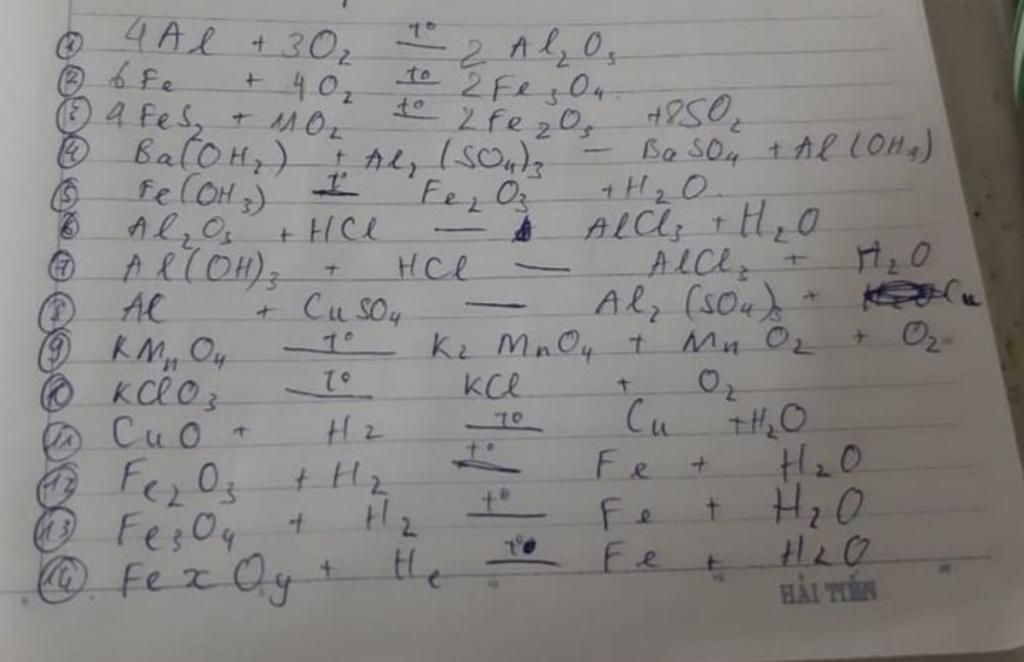 ① 4Al + 3O₂ —t°— 2 Al₂O₃
② 6Fe + 4O₂ —t°— 2Fe₃O₄
③ 4FeS₂ + 11O₂ —t°— 2Fe₂O₃ +8SO₂
④ Ba(OH₂) + Al₂(SO₄)₃ — BaSO₄ + Al(OH₃)
⑤ Fe(OH₃) —t°— Fe₂O₃ +H₂O
⑥ Al₂O₃ + HCl — AlCl₃ + H₂O
⑦ Al(OH)₃ + HCl — AlCl₃ + H₂O
⑧ Al + CuSO₄ — Al₂(SO₄)₃ + Cu
⑨ KMnO₄ —t°— K₂MnO₄ + MnO₂ + O₂
⑩ KClO₃ —t°— KCl + O₂
⑪ CuO + H₂ —t°— Cu +H₂O
⑫ Fe₂O₃ + H₂ —t°— Fe + H₂O
⑬ Fe₃O₄ + H₂ —t°— Fe + H₂O
⑭ FexOy + He —t°— Fe + H₂O
HẢI TIẾN